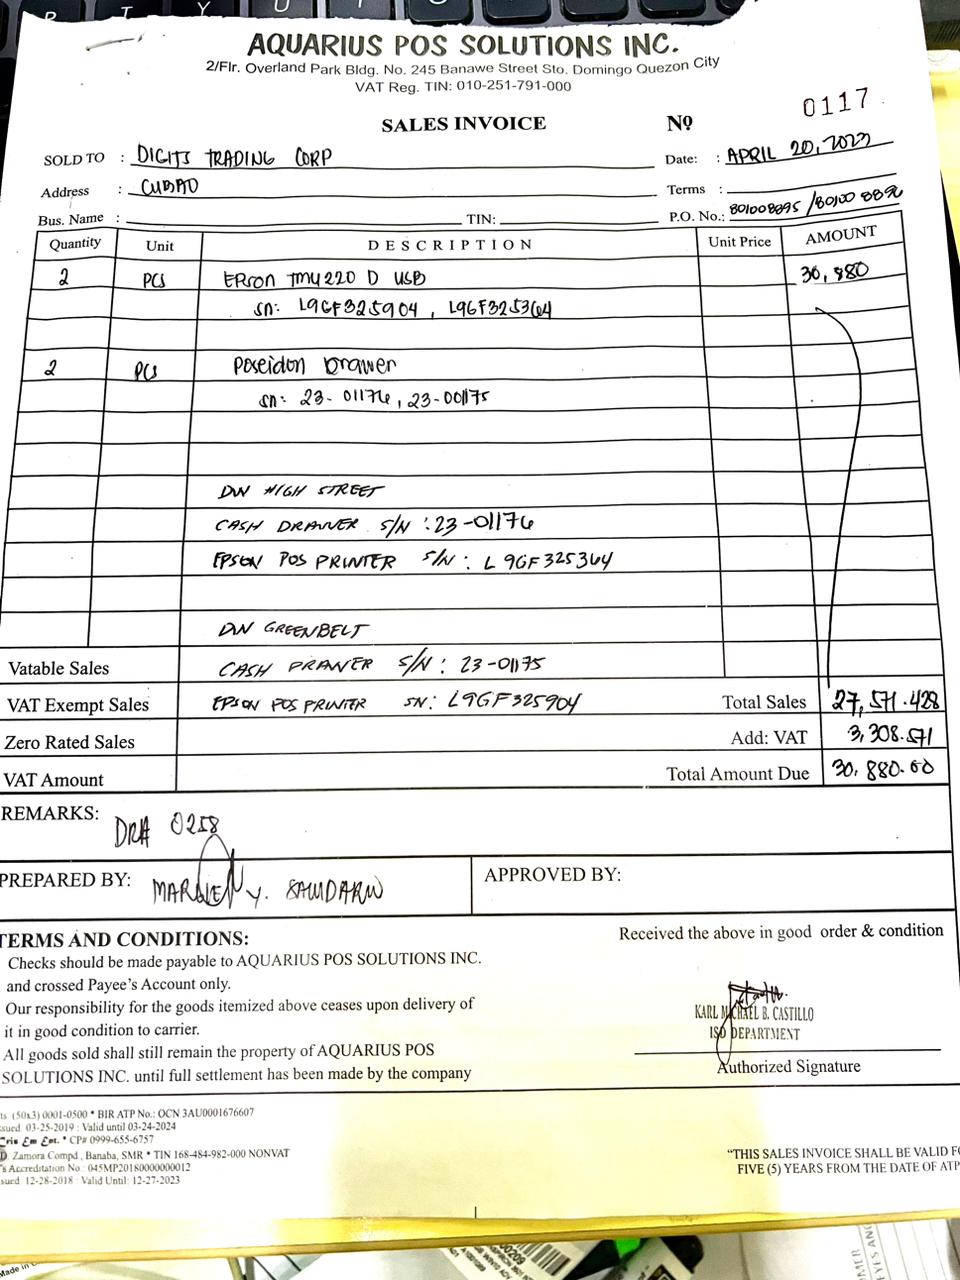 AQUARIUS POS SOLUTIONS INC.
2/Flr. Overland Park Bldg. No. 245 Banawe Street Sto. Domingo Quezon City
VAT Reg. TIN: 010-251-791-000
SALES INVOICE
Nº 0117
SOLD TO : DIGITS TRADING CORP
Date: : APRIL 20, 2023
Address : CUBAO
Terms :
Bus. Name : TIN:
P.O. No.: 801008895 / 80100 8896
Quantity Unit DESCRIPTION Unit Price AMOUNT
2 PCS EPSON TMU220 D USB 30,880
SN: L9GF325904, L9GF325364
2 PCS Poseidon Drawer
SN: 23-01176, 23-001175
DW HIGH STREET
CASH DRAWER S/N : 23-01176
EPSON POS PRINTER S/N : L9GF325364
DW GREENBELT
Vatable Sales CASH DRAWER S/N : 23-01175
VAT Exempt Sales EPSON POS PRINTER SN: L9GF325904 Total Sales 27,571.428
Zero Rated Sales Add: VAT 3,308.571
VAT Amount Total Amount Due 30,880.00
REMARKS: DRA 0258
PREPARED BY: Y.
APPROVED BY:
TERMS AND CONDITIONS:
Checks should be made payable to AQUARIUS POS SOLUTIONS INC.
and crossed Payee's Account only.
Our responsibility for the goods itemized above ceases upon delivery of
it in good condition to carrier.
All goods sold shall still remain the property of AQUARIUS POS
SOLUTIONS INC. until full settlement has been made by the company
Received the above in good order & condition
KARL MICHAEL B. CASTILLO
ISD DEPARTMENT
Authorized Signature
ts (50x3) 0001-0500 * BIR ATP No.: OCN 3AU0001676607
sued: 03-25-2019 : Valid until 03-24-2024
Cris Em Ent. * CP# 0999-655-6757
D Zamora Compd., Banaba, SMR * TIN 168-484-982-000 NONVAT
's Accreditation No : 045MP20180000000012
sued: 12-28-2018 : Valid Until: 12-27-2023
"THIS SALES INVOICE SHALL BE VALID FO
FIVE (5) YEARS FROM THE DATE OF ATP